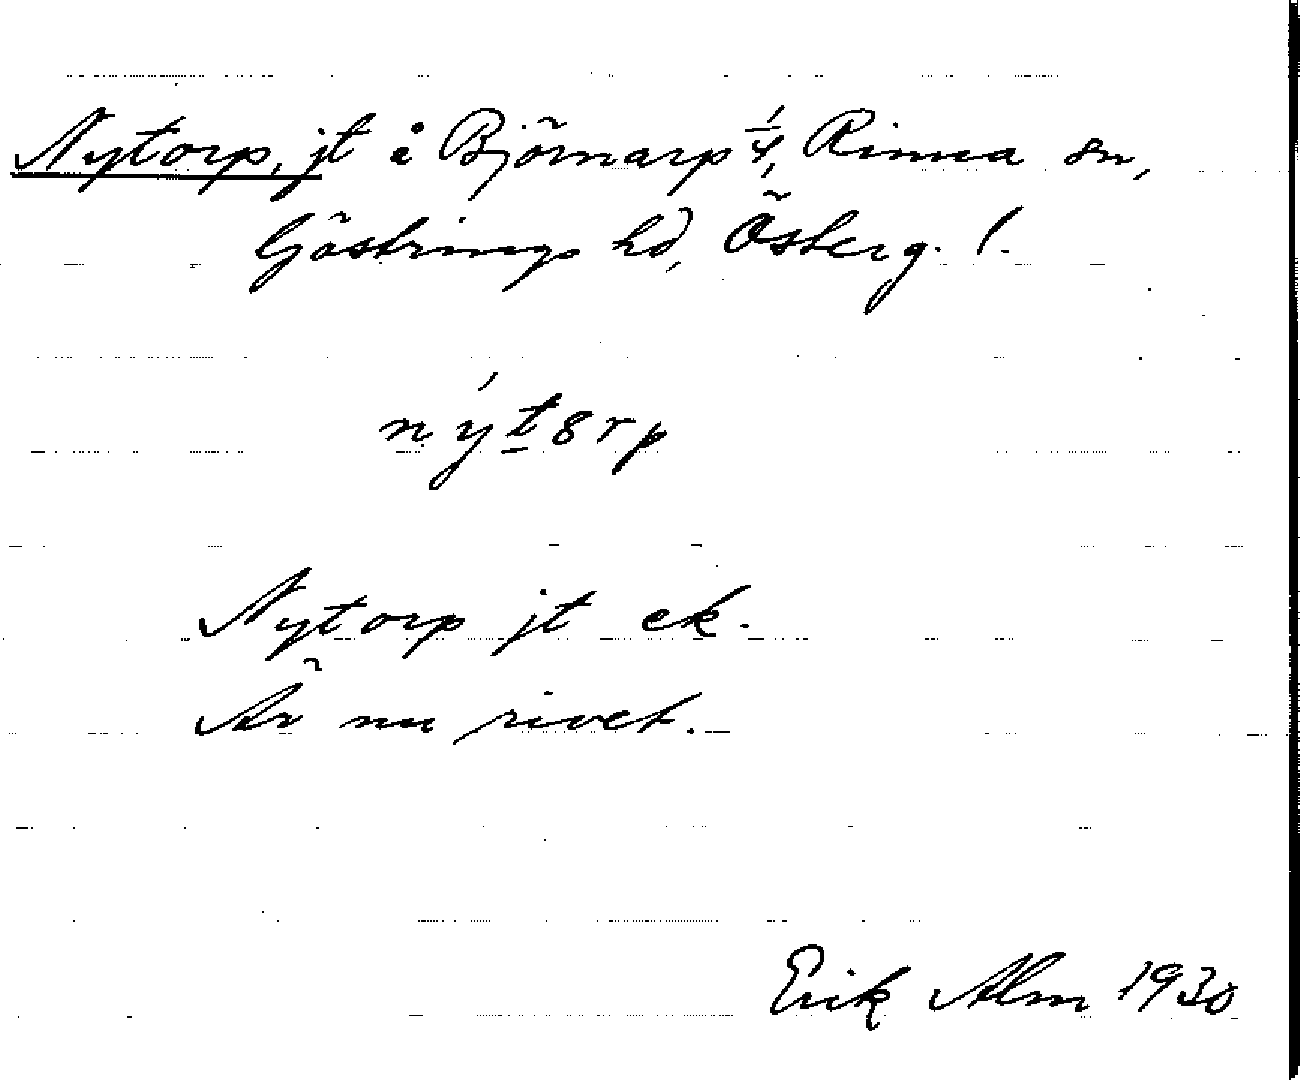 Nytorp, jt å Björnarp 1/4, Rinna sn,
Göstrings hd, Österg. l.
nýt8rp
Nytorp jt ek.
Är nu rivet.
Erik Alm 1930